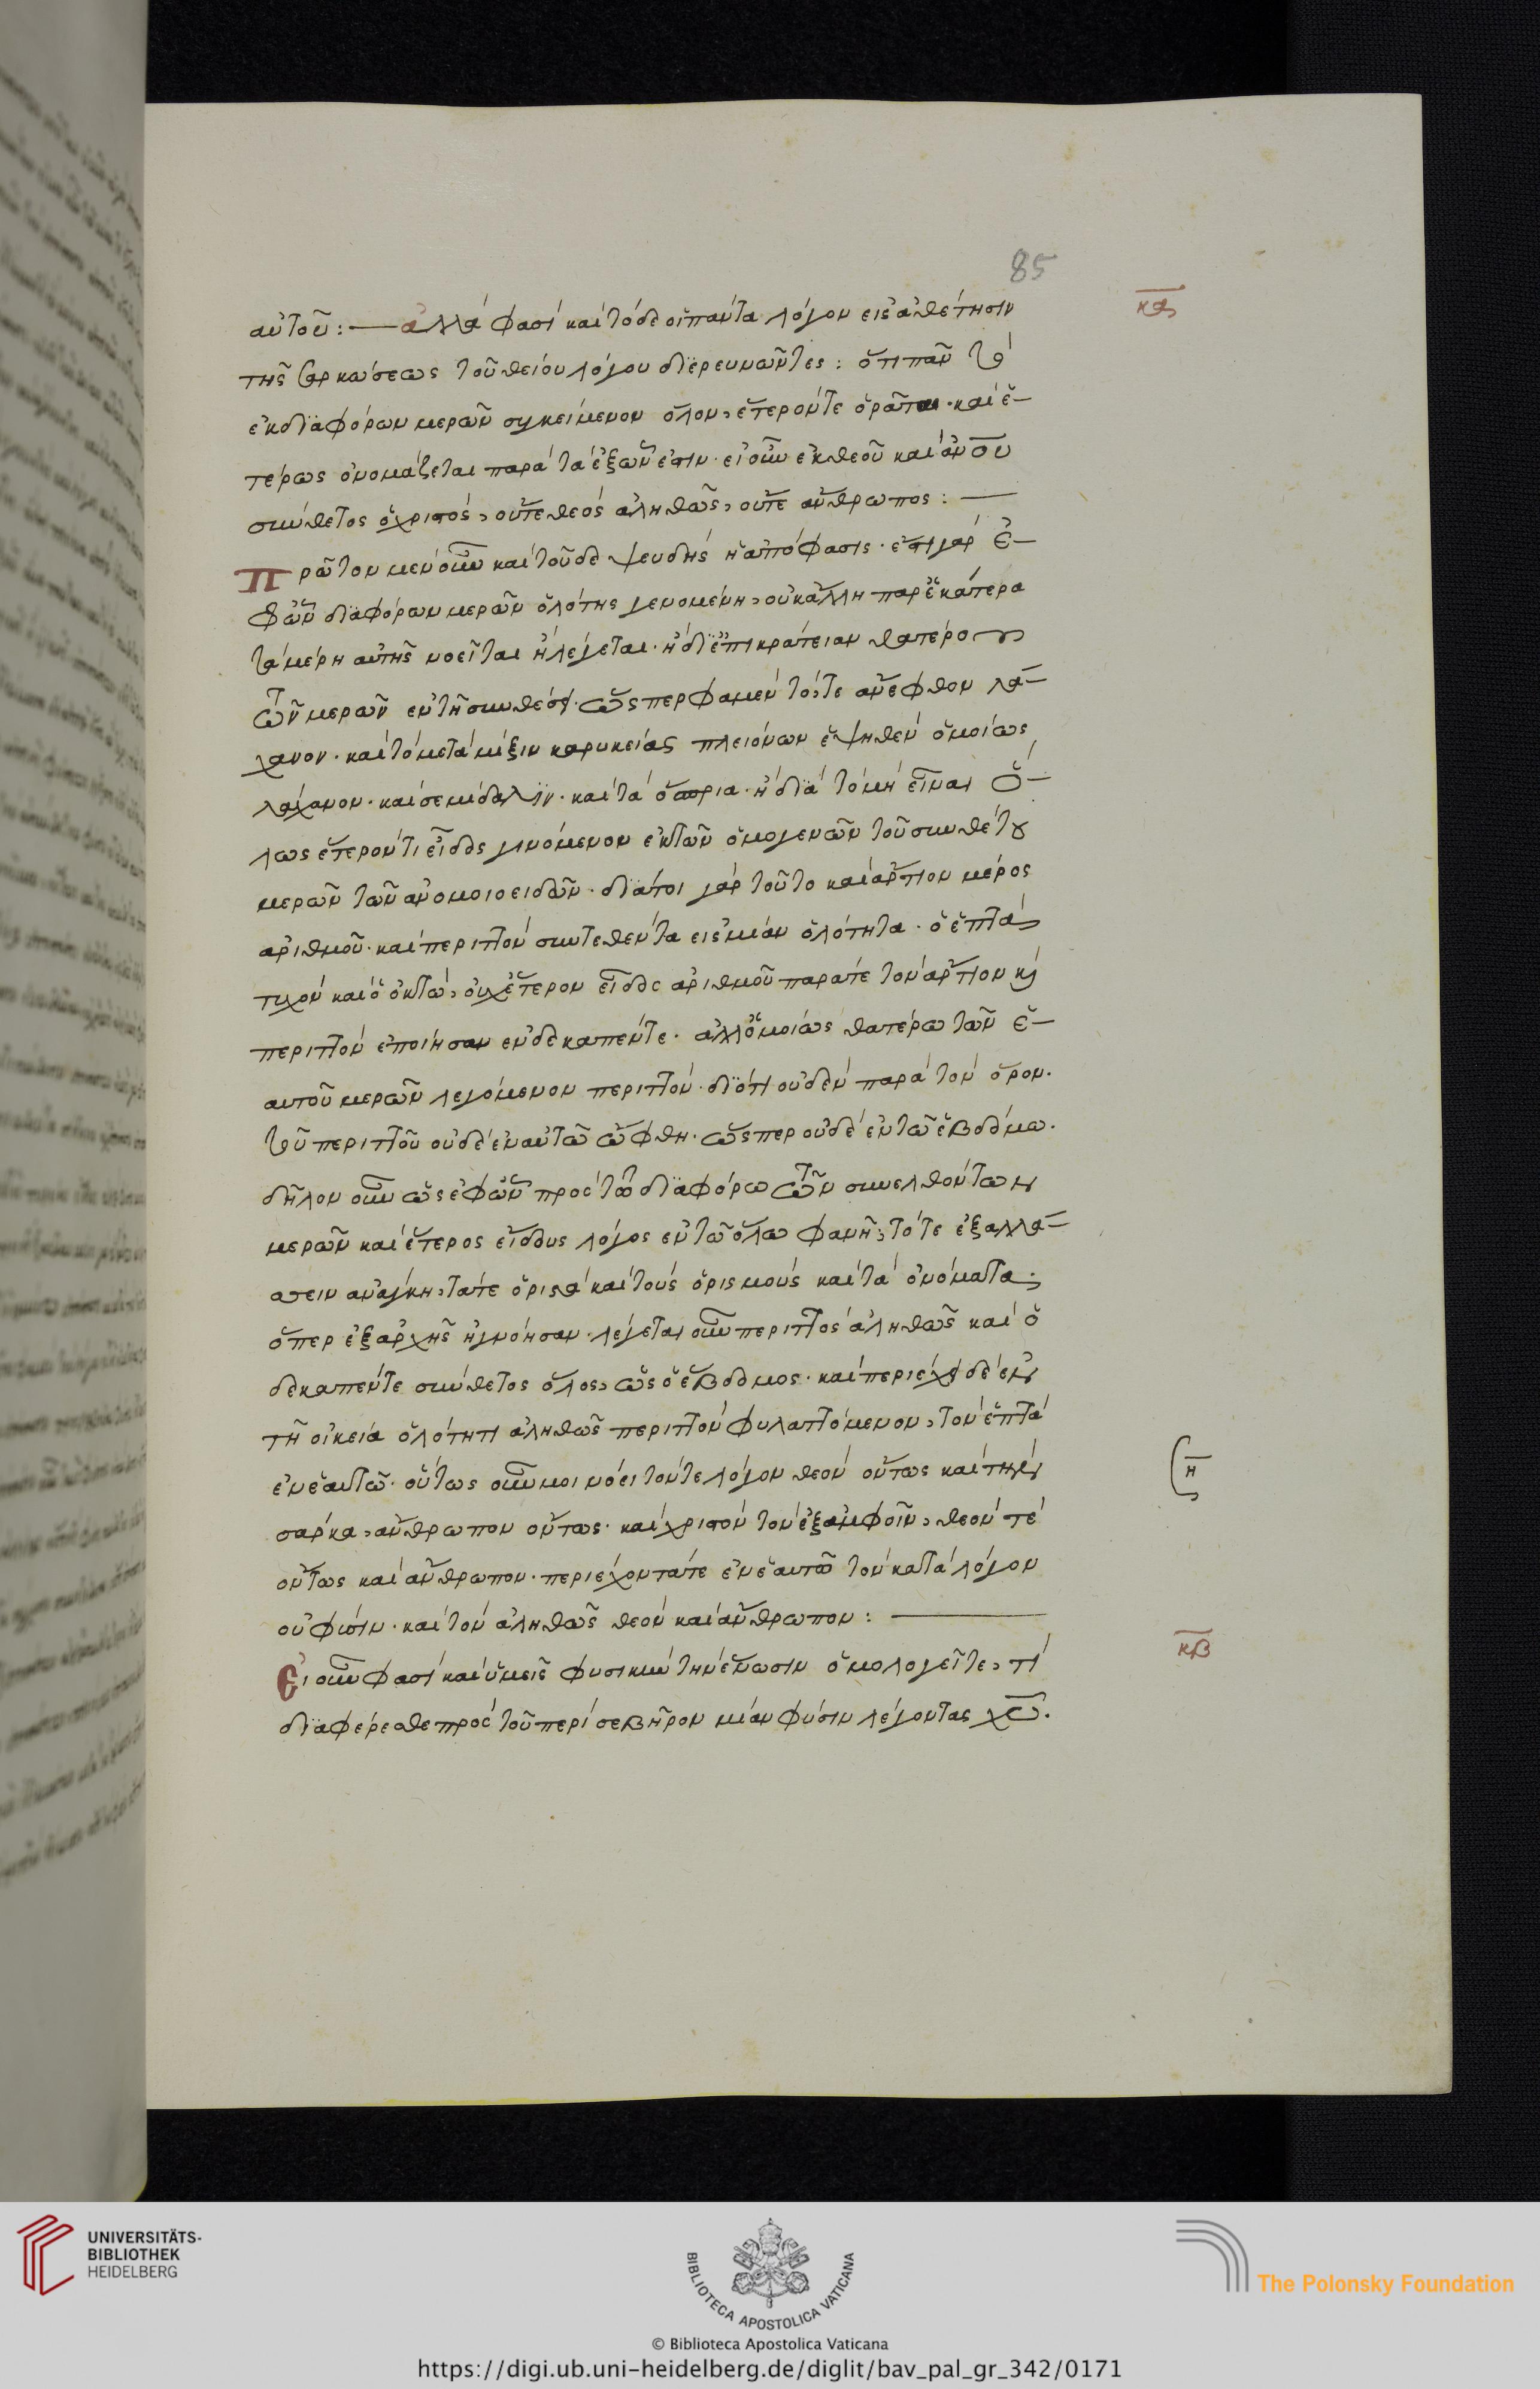 85
αὐτοῦ: — ἀλλά φασὶ καὶ τόδε οἱ πάντα λόγον εἰς ἀθέτησιν
κα
τῆς σαρκώσεως τοῦ θείου λόγου διερευνῶντες: ὅτι πᾶν τὸ
ἐκ διαφόρων μερῶν συγκείμενον ὅλον, ἕτερόν τε ὁρᾶται· καὶ ἑ-
τέρως ὀνομάζεται παρὰ τὰ ἐξ ὧν ἐστιν· εἰ οὖν ἐκ θεοῦ καὶ ἀνου
σύνθετος ὁ χριστός, οὔτε θεὸς ἀληθῶς, οὔτε ἄνθρωπος: —
Πρῶτον μὲν οὖν καὶ τοῦδε ψευδὴς ἡ ἀπόφασις· ἔστι γὰρ ἐ-
φ' ὧν διαφόρων μερῶν ὁλότης γενομένη, οὐκ ἄλλη παρ' ἑκάτερα
τὰ μέρη αὐτῆς νοεῖται ἢ λέγεται· ἢ δι' ἐπικράτειαν θατέρου
τῶν μερῶν ἐν τῇ συνθέσει· ὥσπερ φαμὲν τό, τε ἄνεφθον λά-
χανον· καὶ τὸ μετὰ μίξιν καρυκείας πλειόνων ἑψηθὲν ὁμοίως
λάχανον· καὶ σεμίδαλιν· καὶ τὰ ὄσπρια· ἢ διὰ τὸ μὴ εἶναι ὅ-
λως ἕτερόν τι εἶδος γινόμενον ἐκ τῶν ὁμογενῶν τοῦ συνθέτου
μερῶν τῶν ἀνομοιοειδῶν· διά τοι γὰρ τοῦτο καὶ ἄρτιον μέρος
ἀριθμοῦ· καὶ περιττὸν συντεθέντα εἰς μίαν ὁλότητα· ὁ ἑπτὰ
τυχὸν καὶ ὁ ὀκτώ, οὐχ ἕτερον εἶδος ἀριθμοῦ παρά τε τὸν ἄρτιον κὶ
περιττὸν ἐποίησαν ἐν δεκαπέντε· ἀλλ' ὁμοίως θατέρω τῶν ἑ-
αυτοῦ μερῶν λεγόμενον περιττόν· διότι οὐδὲν παρὰ τὸν ὅρον·
τοῦ περιττοῦ οὐδὲ ἐν αὐτῶ ὤφθη· ὥσπερ οὐδὲ ἐν τῶ ἑβδόμω.
δῆλον οὖν ὡς ἐφ' ὧν πρὸς τῶ διαφόρω τῶν συνελθόντων
μερῶν καὶ ἕτερος εἴδους λόγος ἐν τῶ ὅλω φανῇ, τότε ἐξαλλά-
σσειν ἀνάγκη, τά τε ὁριστὰ καὶ τοὺς ὁρισμοὺς καὶ τὰ ὀνόματα·
ὅπερ ἐξ ἀρχῆς ἠγνόησαν· λέγεται οὖν περιττὸς ἀληθῶς καὶ ὁ
δεκαπέντε σύνθετος ὅλος, ὡς ὁ ἕβδομος· καὶ περιέχει δὲ ἐν
τῇ οἰκεία ὁλότητι ἀληθῶς περιττὸν φυλαττόμενον, τὸν ἑπτὰ
ἐν ἑαυτῶ· οὕτως οὖν μοι νόει τόν τε λόγον θεὸν ὄντως καὶ τὴν
η
σάρκα, ἄνθρωπον ὄντως· καὶ χριστὸν τὸν ἐξ ἀμφοῖν, θεόν τε
ὄντως καὶ ἄνθρωπον· περιέχοντά τε ἐν ἑαυτῶ τὸν κατὰ λόγον
οὐ φύσιν· καὶ τὸν ἀληθῶς θεὸν καὶ ἄνθρωπον: —
κβ
Εἰ οὖν φασὶ καὶ ὑμεῖς φυσικὴν τὴν ἕνωσιν ὁμολογεῖτε, τί
διαφέρεσθε πρὸς τοὺς περὶ σεβῆρον μίαν φύσιν λέγοντας χυ.
UNIVERSITÄTS-
BIBLIOTHEK
HEIDELBERG
BIBLIOTECA APOSTOLICA VATICANA
The Polonsky Foundation
© Biblioteca Apostolica Vaticana
https://digi.ub.uni-heidelberg.de/diglit/bav_pal_gr_342/0171